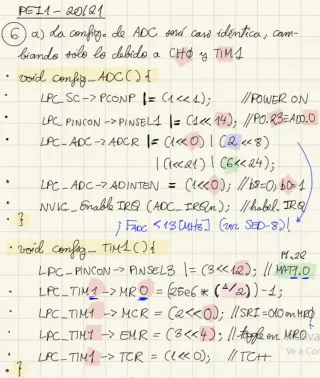 PEI1 - 20/21
6 a) La config. de ADC será casi identica, cam-
biando solo lo debido a CHØ y TIM1
· void config_ADC() {
· LPC_SC->PCONP |= (1<<1); //POWER ON
· LPC_PINCON->PINSEL1 |= (1<<14); //P0.23=AD0.0
· LPC_ADC->ADCR |= (1<<0) | (2<<8)
| (1<<21) | (6<<24);
· LPC_ADC->ADINTEN = (1<<0); //b8=0; b0=1
· NVIC_EnableIRQ (ADC_IRQn); //habil. IRQ
· }
¡ FADC < 13 [MHz] (ver SED-8)!
· void config_TIM1() {
P1.22
· LPC_PINCON->PINSEL3 |= (3<<12); //MAT1.0
· LPC_TIM1->MR0 = (25e6 * (1/2))-1;
· LPC_TIM1->MCR = (2<<0); //SRI=010 en MRØ
· LPC_TIM1->EMR = (3<<4); //toggle on MR0
· LPC_TIM1->TCR = (1<<0); //TC++
· }